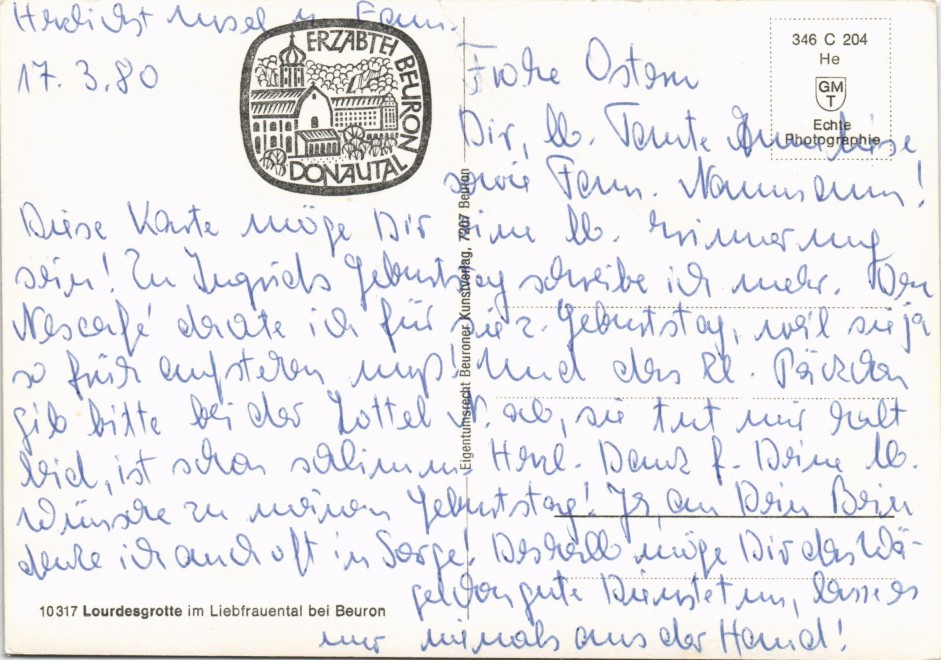 Herzlichst Ursel u. Fam.
17.3.80
ERZABTEI BEURON
DONAUTAL
346 C 204
He
GM
T
Echte
Photographie
Frohe Ostern
Dir, lb. Tante Anneliese
sowie Fam. Naumann!
Diese Karte möge Dir eine lb. Erinnerung
sein! Zu Ingrids Geburtstag schreibe ich mehr. Den
Nescafé dachte ich für sie z. Geburtstag, weil sie ja
so früh aufstehen muß! Und das kl. Päckchen
gib bitte bei der Lottel N. ab, sie tut mir halt
leid, ist schon schlimm. Herzl. Dank f. Deine lb.
Wünsche zu meinem Geburtstag! Ja, an Dein Bein
denke ich auch oft in Sorge! Deshalb möge Dir das Wä-
gelchen gute Dienste tun, lasse es
nur niemals aus der Hand!
Eigentumsrecht Beuroner Kunstverlag, 7207 Beuron
10317 Lourdesgrotte im Liebfrauental bei Beuron